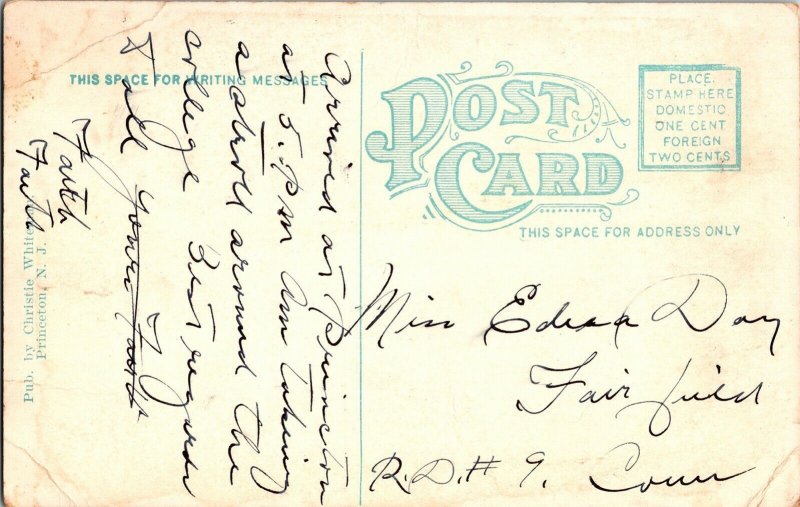 THIS SPACE FOR WRITING MESSAGES
Arrived at Princeton
at 5. Pm Am taking
a stroll around the
college Best regards
to all Yours
Faith
Faith
Pub. by Christie White
Princeton, N. J.
POST CARD
PLACE
STAMP HERE
DOMESTIC
ONE CENT
FOREIGN
TWO CENTS
THIS SPACE FOR ADDRESS ONLY
Miss Edna Day
Fairfield
R.D.# 9. Conn